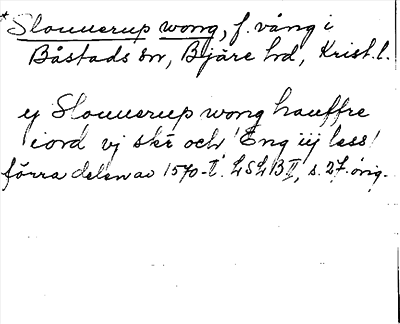 *Slouuerup wong, f. vång i
Båstads sn, Bjäre hd, Krist. l.
ej Slouuerup wong hauffre
iord vj skr och Eng iij less!
förra delen av 1570-t. LSLB II, s. 27. orig.